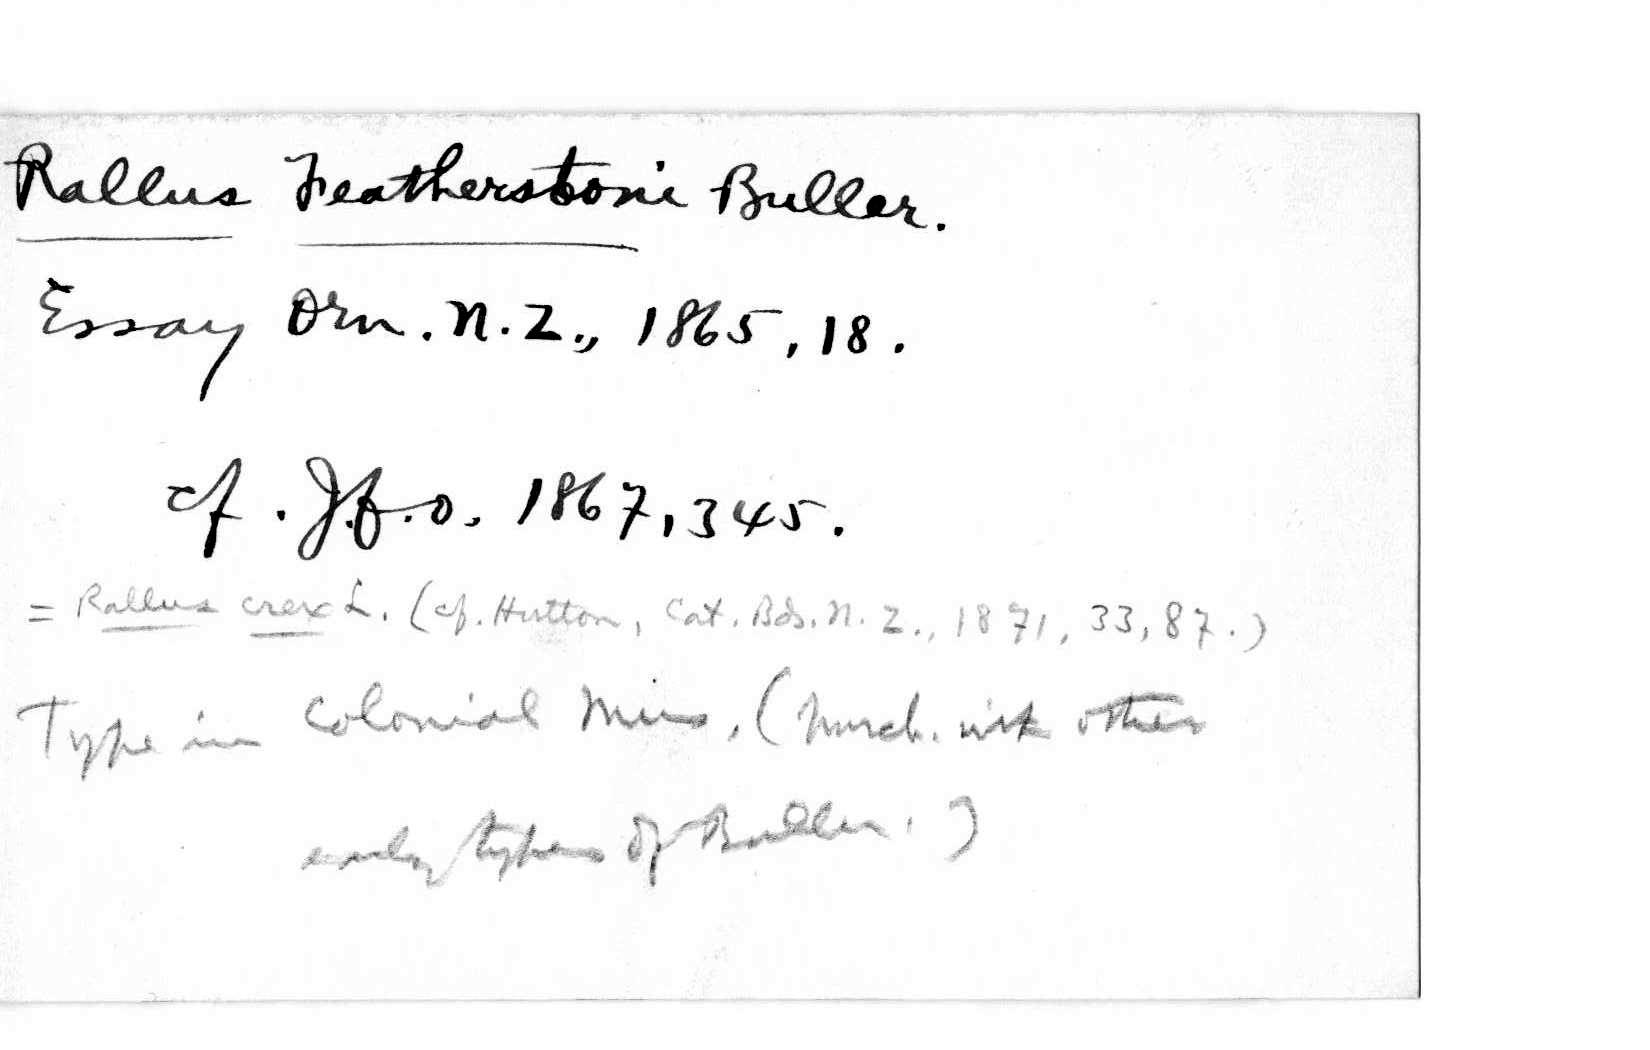 Rallus Featherstonii Buller.
Essay Orn. N.Z., 1865, 18.
cf. J.f.O. 1867, 345.
= Rallus crex L. (cf. Hutton, Cat. Bds. N.Z., 1871, 33, 87.)
Type in Colonial Mus. (purch. with other
early types of Buller.)